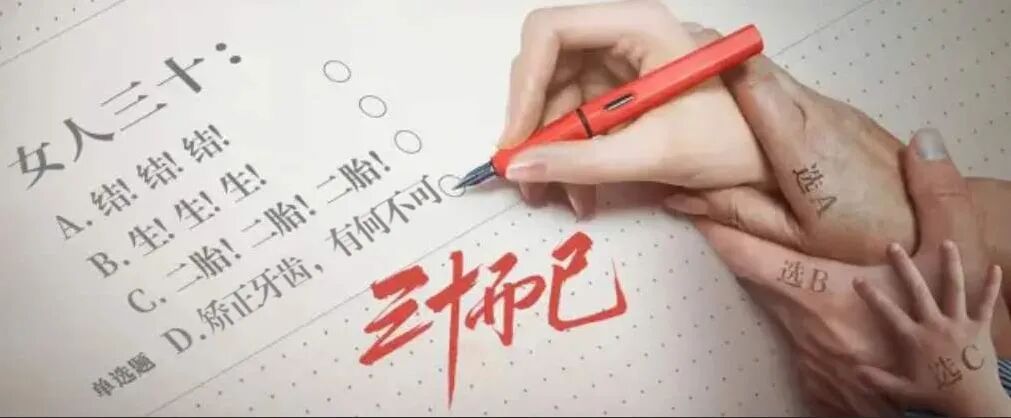 女人三十：
A. 结! 结! 结!
B. 生! 生! 生!
C. 二胎! 二胎! 二胎!
D. 矫正牙齿，有何不可
单选题
三十而已
选A
选B
选C